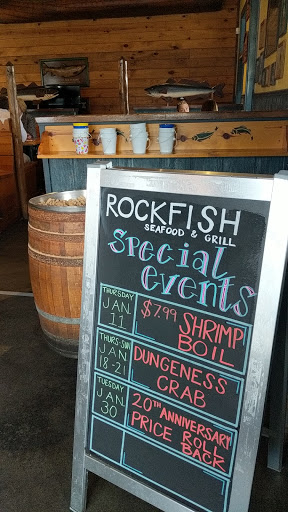 ROCKFISH
SEAFOOD & GRILL
Special
events
THURSDAY
JAN
11
$7.99 SHRIMP
BOIL
THURS-SUN
JAN
18-21
DUNGENESS
CRAB
TUESDAY
JAN
30
20TH ANNIVERSARY
PRICE ROLL
BACK